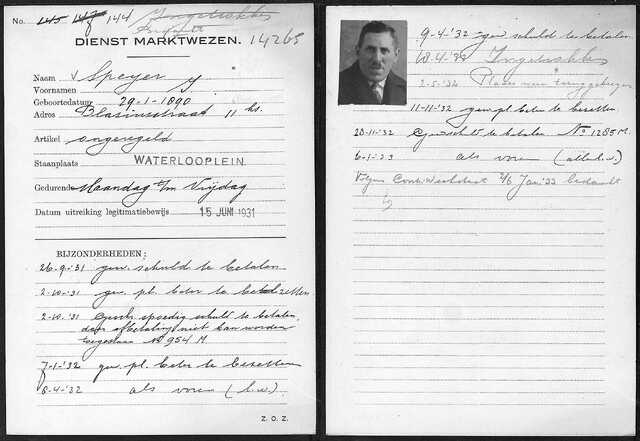 No. 145 147 144 Ingetrokken
DIENST MARKTWEZEN. 14265
Naam Speyer J
Voornamen
Geboortedatum 29-1-1890
Adres Blasiusstraat 11 hs.
Artikel ongeregeld
Staanplaats WATERLOOPLEIN
Gedurende Maandag t/m Vrijdag
Datum uitreiking legitimatiebewijs 15 JUNI 1931
BIJZONDERHEDEN:
26-9-'31 gew. schuld te betalen
2-10-'31 gew. pl. beter te bezetten
2-10-'31 Gesch. spoedig schuld te betalen,
daar afbetaling niet kan worden
toegestaan No 954 M.
7-1-'32 gew. pl. beter te bezetten
8-4-'32 als voren (b.w.)
Z. O. Z.
9-4-'32 gew. schuld te betalen
18-4-'32 Ingetrokken
2-5-'32 Plaats weer teruggekregen
11-11-'32 gew. pl. beter te bezetten
20-11-'32 Geschr. schuld te betalen No 1285 M.
6-1-'33 als voren (b.w.)
Volgens Contr. 2/6 Jan '33 bedankt